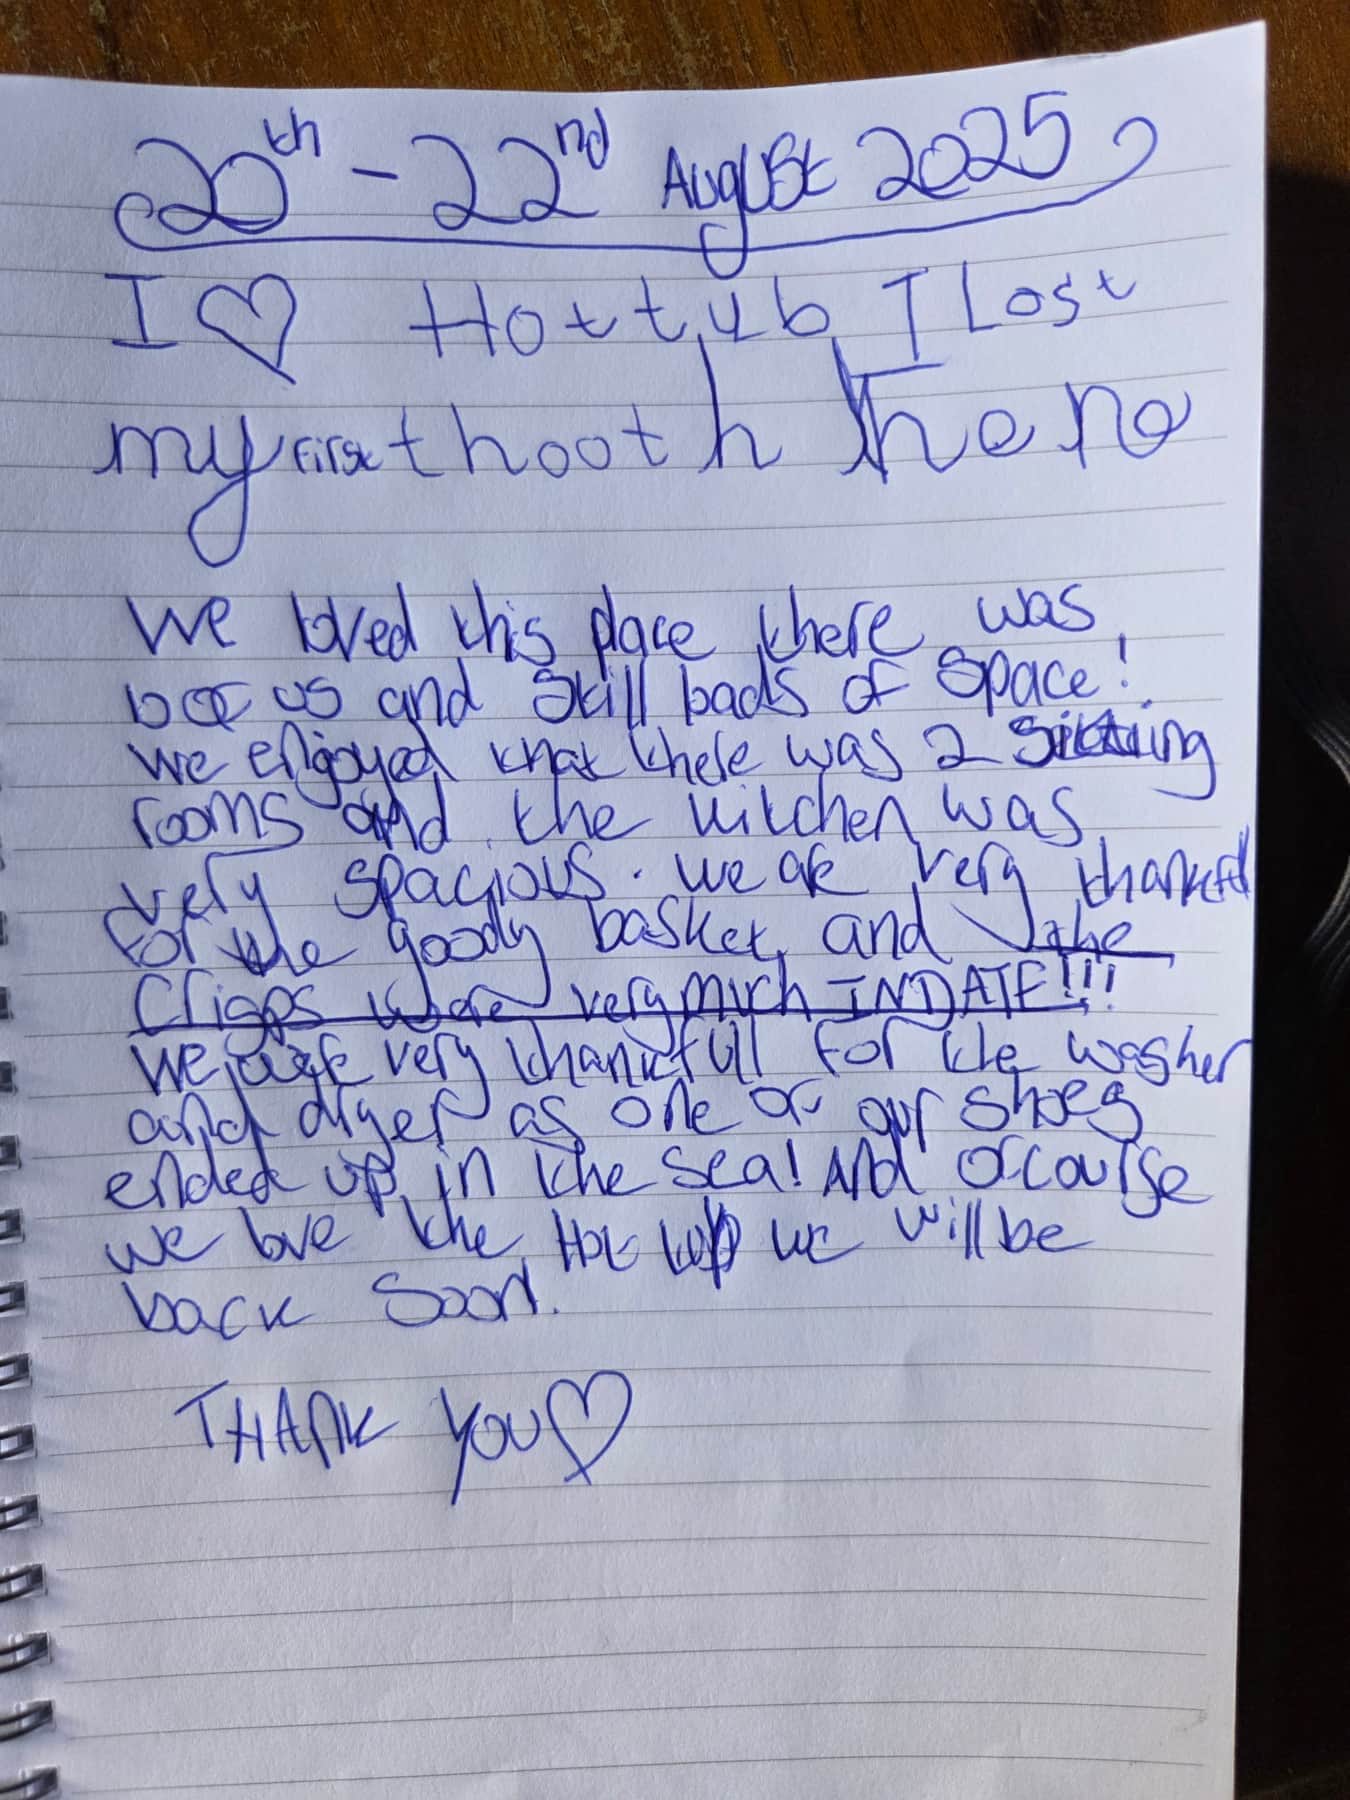 20th - 22nd August 2025
I ♡ Hot tub I Lost
my first thooth there
we loved this place there was
of us and still loads of space!
we enjoyed that there was 2 sitting
rooms and the kitchen was
very spacious. we are very thankful
for the goody basket and the
crisps were very much INDATE!!!
we are very thankfull for the washer
and dryer as one of our shoes
ended up in the sea! And ofcourse
we love the Hot tub we will be
back soon.
THANK YOU ♡